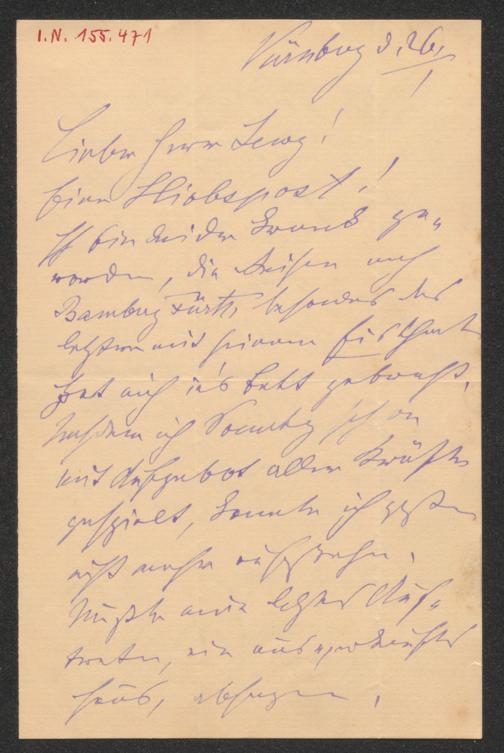 I.N. 155.471
Nürnberg d. 26/1
Lieber Herr Lewy!
Eine Hiobspost!
Ich bin leider krank ge-
worden, die Reisen nach
Bamberg Fürth, besonders das
letztere mit seinem Eistheater
hat mich in's Bett gebracht.
Nachdem ich Sonntag schon
mit Aufgebot aller Kräfte
gespielt, konnte ich gestern
nicht mehr aufstehn.
Mußte mein letztes Auf-
treten, ein ausverkauftes
Haus, absagen.